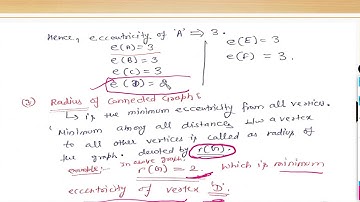 Hence, eccentricity of 'A' ⇒ 3.
e(A) = 3
e(B) = 3
e(C) = 3
e(D) = 2
e(E) = 3
e(F) = 3.
Radius of Connected Graph:
↳ is the minimum eccentricity from all vertices.
'Minimum among all distances b/w a vertex
to all other vertices is called as radius of
the graph. denoted by r(G).
example:- In above graph:
r(G) = 2 which is minimum
eccentricity of vertex 'D'.